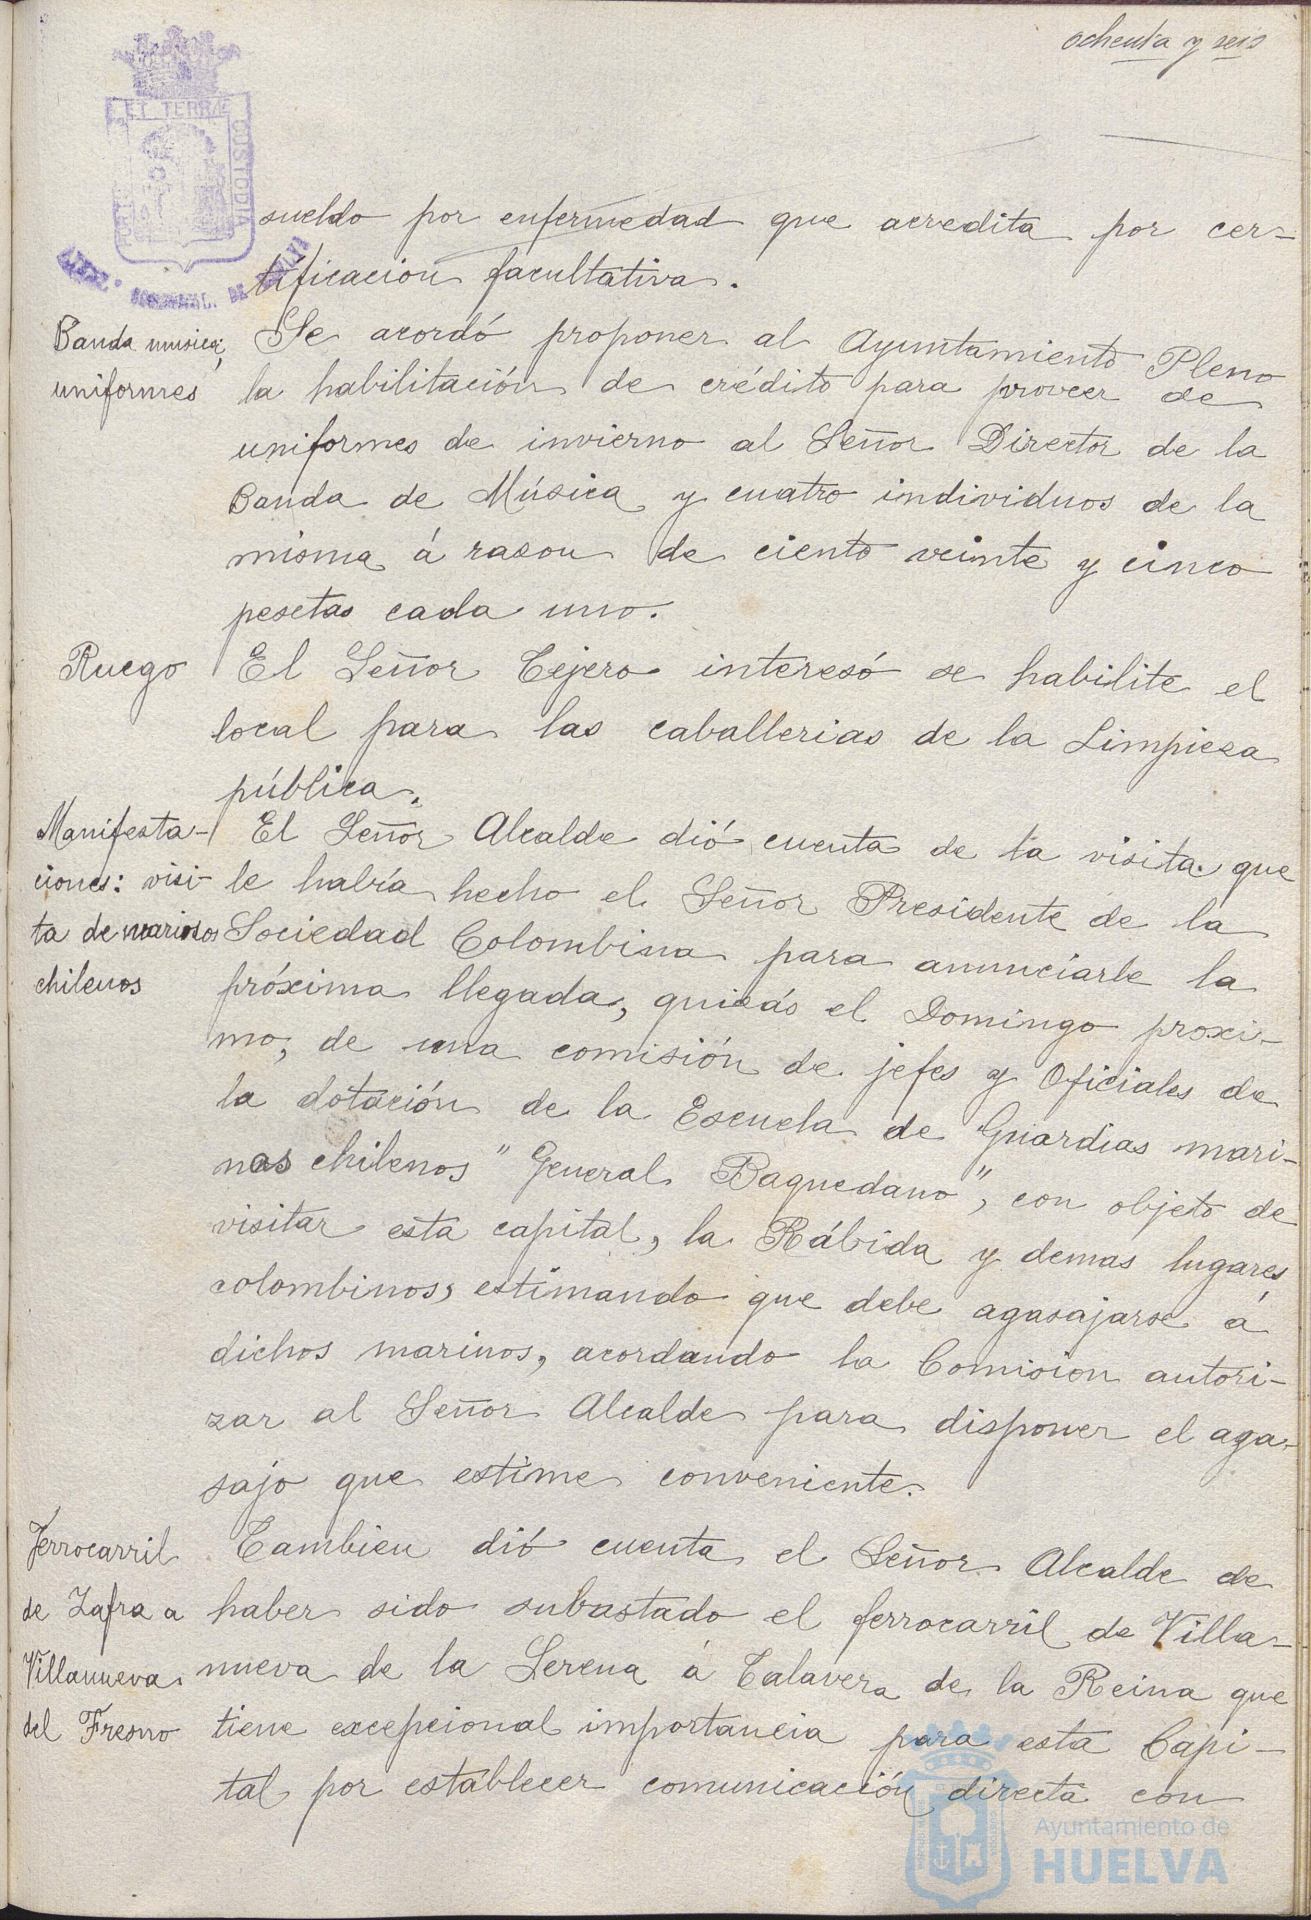 ochenta y seis
ET TERRÆ
CUSTODIA
PORTUS
sueldo por enfermedad que acredita por cer-
tificación facultativa.
Banda musica,
uniformes
Se acordó proponer al Ayuntamiento Pleno
la habilitación de crédito para proveer de
uniformes de invierno al Señor Director de la
Banda de Música y cuatro individuos de la
misma á razon de ciento veinte y cinco
pesetas cada uno.
Ruego
El Señor Tejero interesó se habilite el
local para las caballerias de la Limpieza
pública.
Manifesta-
ciones: visi-
ta de marinos
chilenos
El Señor Alcalde dió cuenta de la visita que
le había hecho el Señor Presidente de la
Sociedad Colombina para anunciarle la
próxima llegada, quizás el Domingo proxi-
mo, de una comisión de jefes y Oficiales de
la dotación de la Escuela de Guardias mari-
nas chilenos "General Baquedano", con objeto de
visitar esta capital, la Rábida y demas lugares
colombinos, estimando que debe agasajarse á
dichos marinos, acordando la Comision autori-
zar al Señor Alcalde para disponer el aga-
sajo que estime conveniente.
Ferrocarril
de Zafra a
Villanueva
del Fresno
Tambien dió cuenta el Señor Alcalde de
haber sido subastado el ferrocarril de Villa-
nueva de la Serena á Talavera de la Reina que
tiene excepcional importancia para esta Capi-
tal por establecer comunicación directa con
Ayuntamiento de
HUELVA